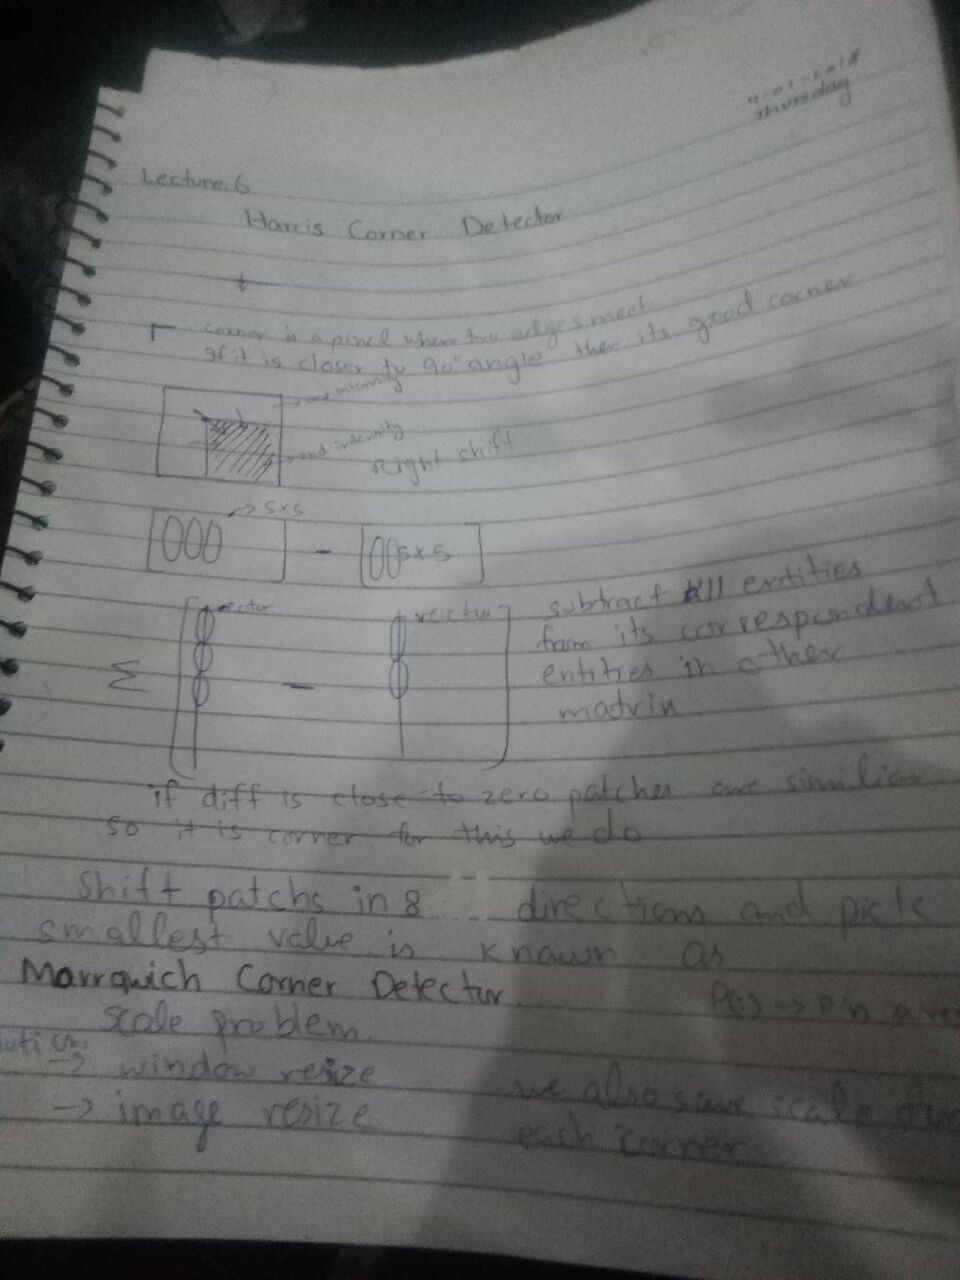 Thursday
Lecture: 6
Harris Corner Detector
corner is a pixel where two edges meet
if it is closer to 90° angle then its good corner
one intensity
2nd intensity
Right shift
5x5
000
-
00 5x5
vector
vector
Σ
-
subtract all entities
from its correspondent
entities in other
matrix
if diff is close to zero patches are similiar
so it is corner for this we do
Shift patchs in 8 directions and pick
smallest value is knawn as
Marrquich Corner Detector
P(i) →
scale problem
→ window resize
→ image resize
we also save scale
each corner